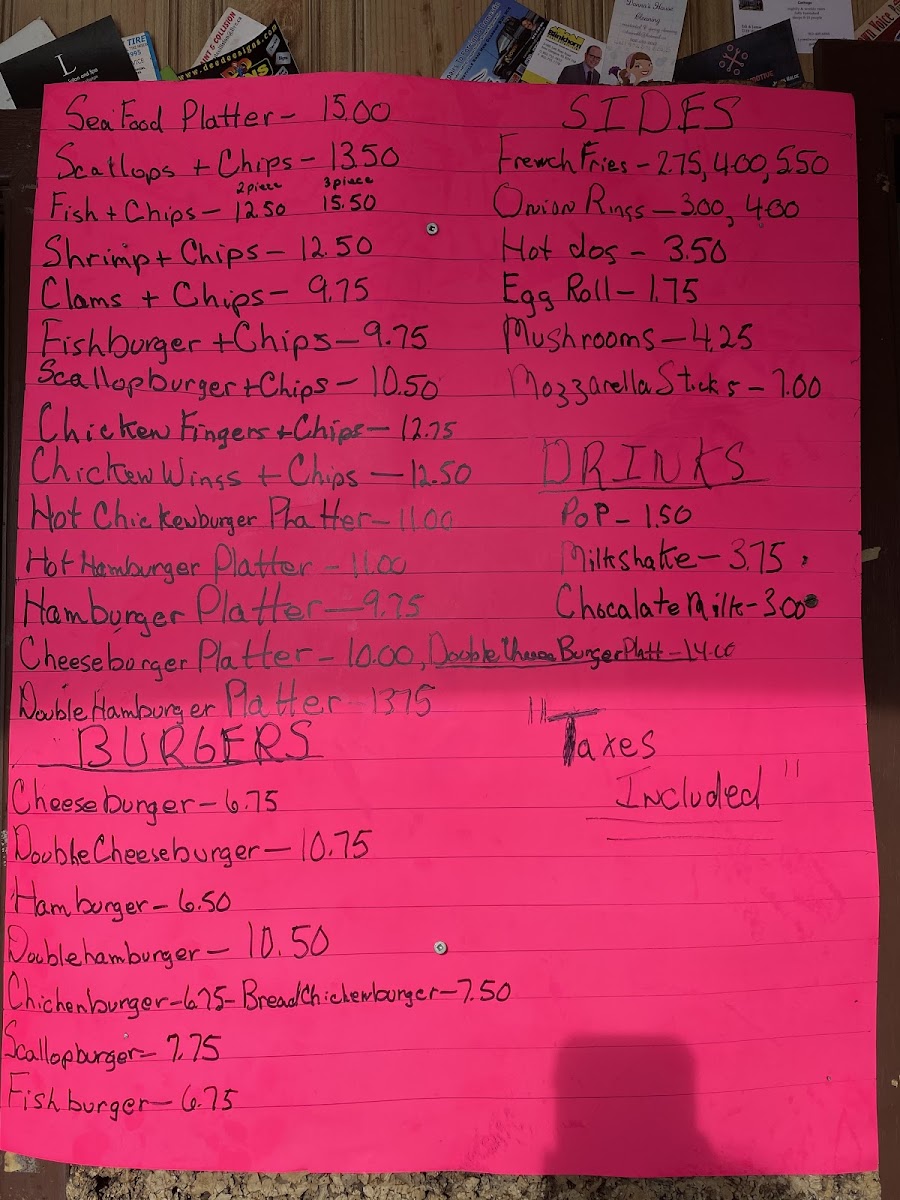 L
TIRE
& COLLISION
www.deedesigns.com
Donna's House
Cleaning
SeaFood Platter - 15.00
Scallops + Chips - 13.50
2piece 3piece
Fish + Chips - 12.50 15.50
Shrimp + Chips - 12.50
Clams + Chips - 9.75
Fishburger + Chips - 9.75
Scallopburger + Chips - 10.50
Chicken Fingers + Chips - 12.75
Chicken Wings + Chips - 12.50
Hot Chickenburger Platter - 11.00
Hot Hamburger Platter - 11.00
Hamburger Platter - 9.75
Cheeseburger Platter - 10.00, Double Cheese Burger Platt - 14.00
Double Hamburger Platter - 13.75
BURGERS
Cheeseburger - 6.75
Double Cheeseburger - 10.75
Hamburger - 6.50
Doublehamburger - 10.50
Chichenburger - 6.75 - BreadChickenburger - 7.50
Scallopburger - 7.75
Fishburger - 6.75
SIDES
French Fries - 2.75, 4.00, 5.50
Onion Rings - 3.00, 4.00
Hot dog - 3.50
Egg Roll - 1.75
Mushrooms - 4.25
Mozzarella Sticks - 7.00
DRINKS
PoP - 1.50
Milkshake - 3.75
Chocalate Milk - 3.00
"Taxes
Included"